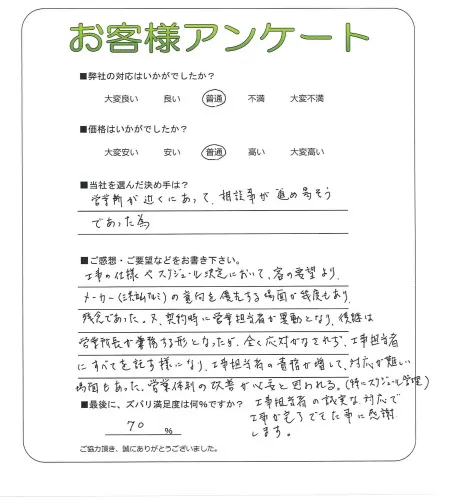 お客様アンケート
■弊社の対応はいかがでしたか？
大変良い 良い 普通 不満 大変不満
■価格はいかがでしたか？
大変安い 安い 普通 高い 大変高い
■当社を選んだ決め手は？
営業所が近くにあって、相談事が進め易そう
であった為
■ご感想・ご要望などをお書き下さい。
工事の仕様やスケジュール決定において、客の要望より、
メーカー(三協アルミ)の意向を優先する場面が幾度もあり、
残念であった。又、契約時に営業担当者が異動となり、後継は
営業所長が兼務する形となったが、全く応対がなされず、工事担当者
にすべてを託す様になり、工事担当者の責務が増して、対応が難しい
場面もあった。営業体制の改善が必要と思われる。(特にスケジュール管理)
■最後に、ズバリ満足度は何%ですか？
70 %
工事担当者の誠実な対応で
工事が完了でき た事に感謝
します。
ご協力頂き、誠にありがとうございました。